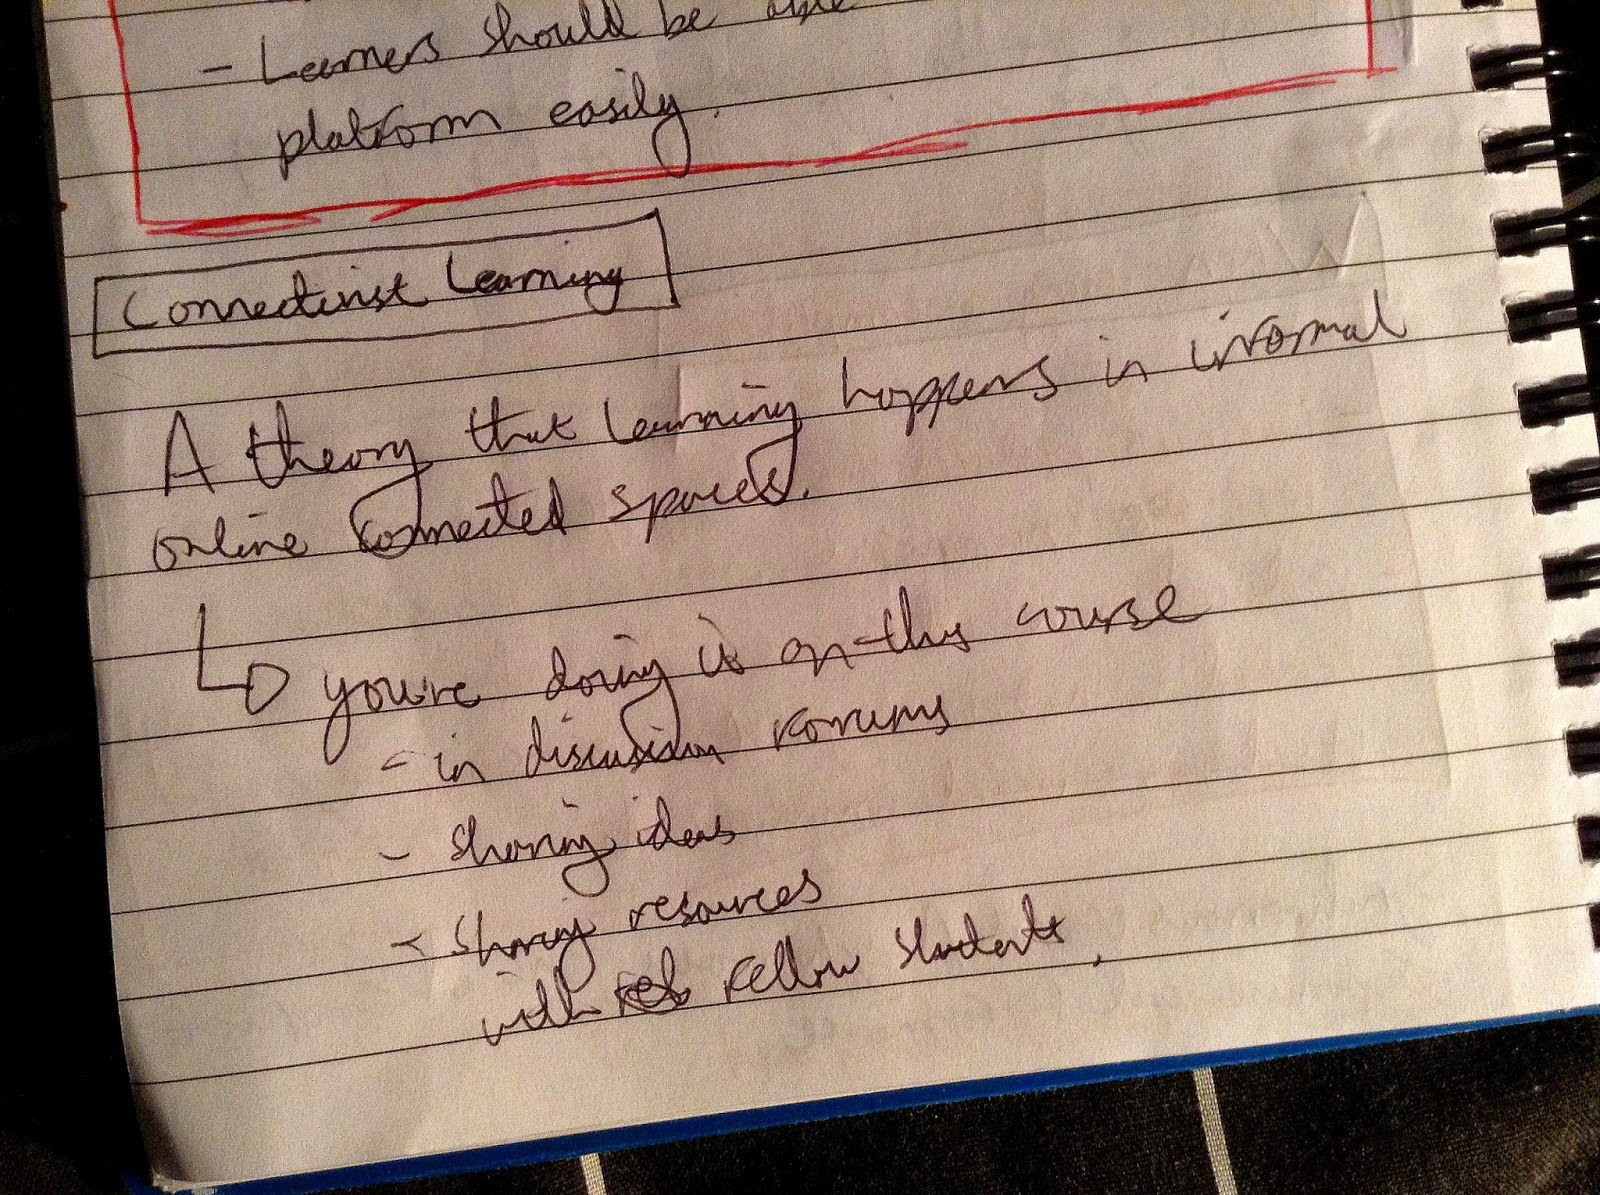 - Learners should be able
platform easily.
Connectivist Learning
A theory that learning happens in informal
online connected spaces.
you're doing it on this course
- in discussion forums
- sharing ideas
- sharing resources
with fellow students.